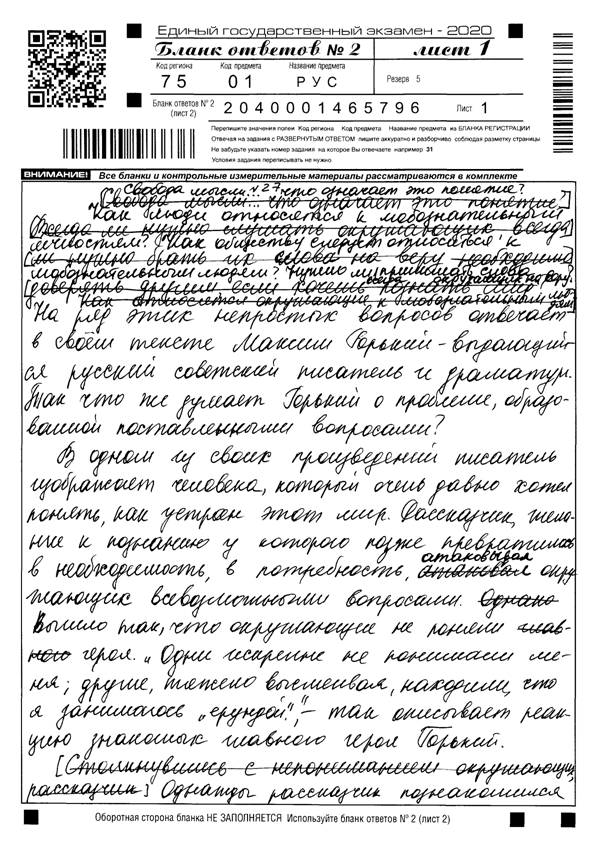 Единый государственный экзамен - 2020
Бланк ответов № 2 лист 1
Код региона Код предмета Название предмета
75 01 РУС Резерв 5
Бланк ответов № 2 (лист 2) 2040001465796 Лист 1
Перепишите значения полей Код региона Код предмета Название предмета из БЛАНКА РЕГИСТРАЦИИ
Отвечая на задания с РАЗВЕРНУТЫМ ОТВЕТОМ пишите аккуратно и разборчиво соблюдая разметку страницы
Не забудьте указать номер задания на которое Вы отвечаете например 31
Условия задания переписывать не нужно
ВНИМАНИЕ! Все бланки и контрольные измерительные материалы рассматриваются в комплекте
Свобода мысли... 27 что означает это понятие?
[Свобода мысли... что означает это понятие?]
Как люди относятся к любознательным
[Всегда ли нужно слушать окружающих всегда
личностям? Как обществу следует относиться к
ли нужно брать их слова на веру необходимо
любознательным людям? Нужно ли принимать слова
всегда окружающих на веру.
доверять другим если хочешь познать мир
Как относятся окружающие к любознательным людям]
На ряд этих непростых вопросов отвечает
в своём тексте Максим Горький - выдающий-
ся русский советский писатель и драматург.
Так что же думает Горький о проблеме, образо-
ванной поставленными вопросами?
В одном из своих произведений писатель
изображает человека, который очень давно хотел
понять, как устроен этот мир. Рассказчик, тяго-
ние к познанию у которого позже превратилось
в необходимость, в потребность, атаковывал атаковал окру-
жающих всевозможными вопросами. Однако
Вышло так, что окружающие не поняли глав-
ного героя. „Одни искренне не понимали ме-
ня; другие, тяжело высмеивая, находили, что
я занимаюсь „ерундой“, – так описывает реак-
цию знакомых главного героя Горький.
[Столкнувшись с непониманием окружающих,
рассказчик] Однажды рассказчик познакомился
Оборотная сторона бланка НЕ ЗАПОЛНЯЕТСЯ Используйте бланк ответов № 2 (лист 2)